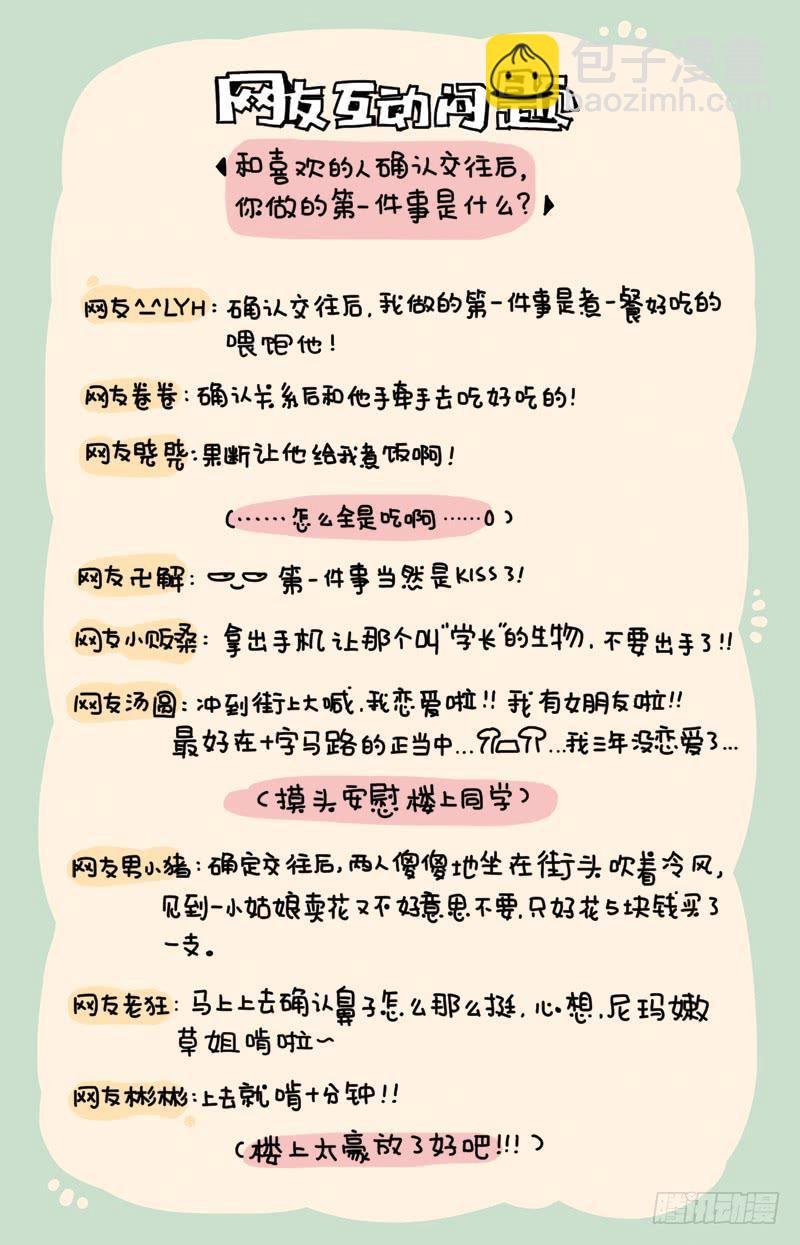 包子漫畫
baozimh.com
网友互动问题
和喜欢的人确认交往后,
你做的第一件事是什么?
网友^_^LYH:确认交往后,我做的第一件事是煮一餐好吃的
喂饱他!
网友卷卷:确认关系后和他手牵手去吃好吃的!
网友晓晓:果断让他给我煮饭啊!
(……怎么全是吃啊……()
网友卍解: 第一件事当然是KISS了!
网友小贩桑:拿出手机让那个叫"学长"的生物,不要出手了!!
网友汤圆:冲到街上大喊,我恋爱啦!!我有女朋友啦!!
最好在十字马路的正当中......我三年没恋爱了...
(摸头安慰楼上同学)
网友男小猪:确定交往后,两人傻傻地坐在街头吹着冷风,
见到一小姑娘卖花又不好意思不要,只好花5块钱买了
一支。
网友老狂:马上上去确认鼻子怎么那么挺,心想,尼玛嫩
草姐啃啦~
网友彬彬:上去就啃十分钟!!
(楼上太豪放了好吧!!!)
腾讯动漫